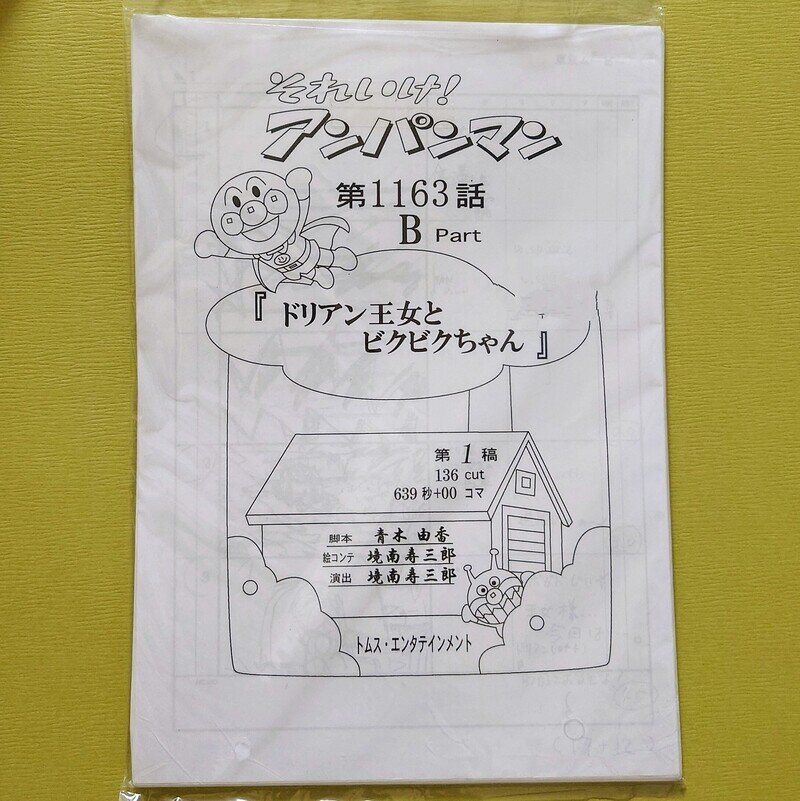 それいけ!
アンパンマン
第1163話
B Part
『ドリアン王女と
ビクビクちゃん』
第1稿
136 cut
639秒+00コマ
脚本 青木由香
絵コンテ 境南寿三郎
演出 境南寿三郎
トムス・エンタテインメント